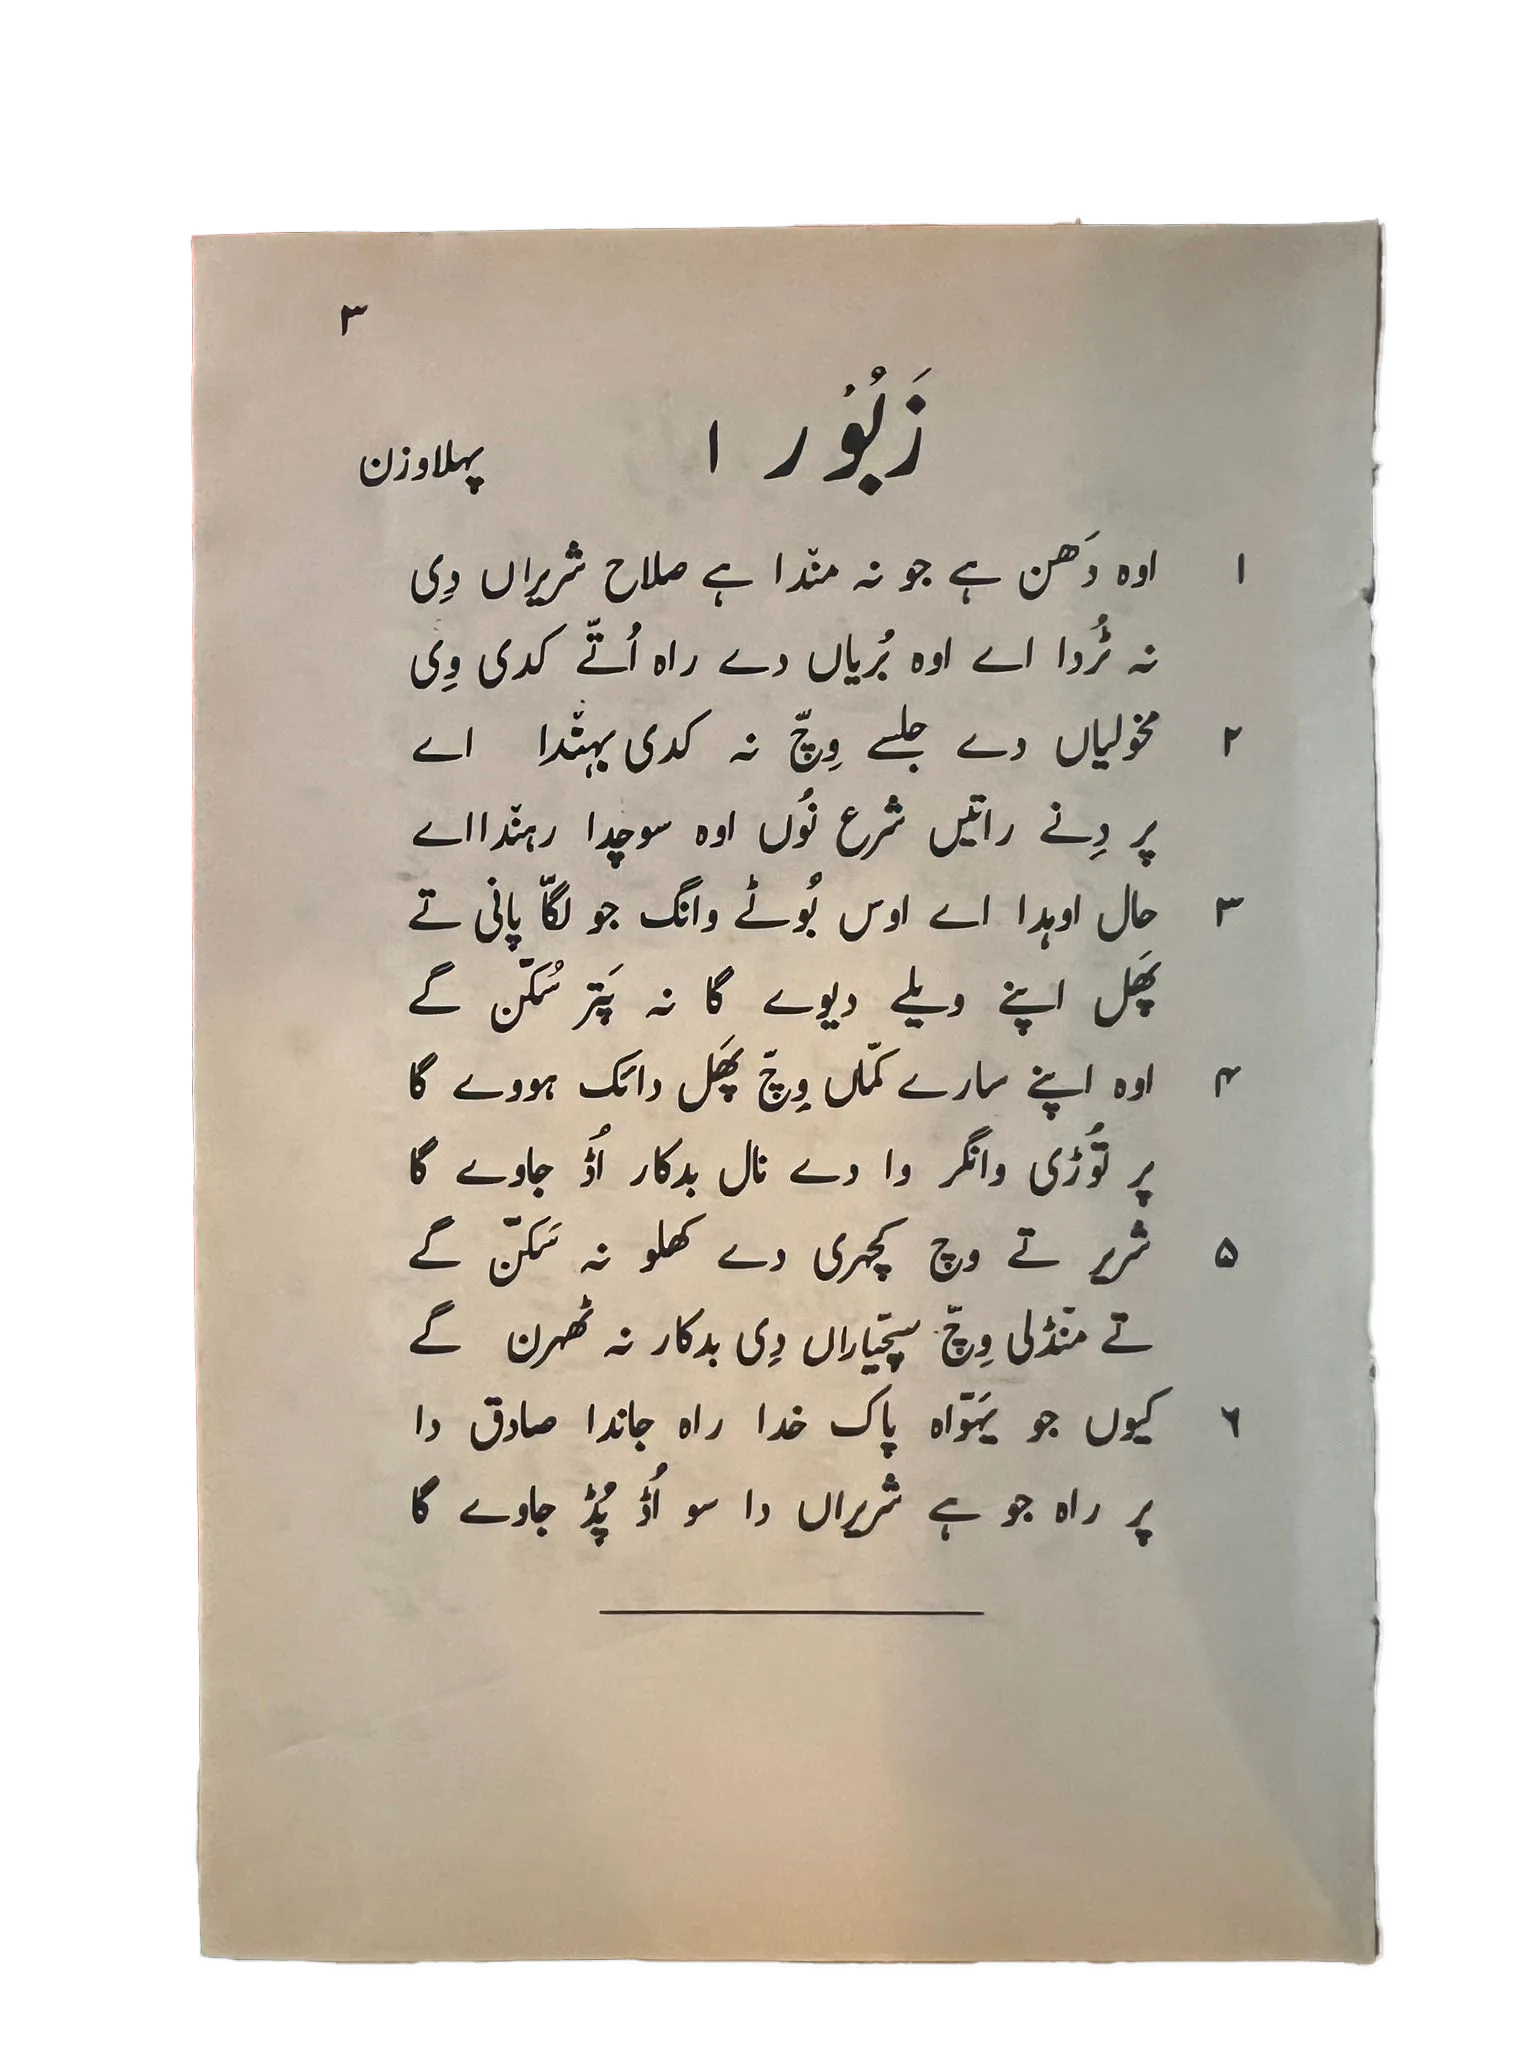 ۳
زَبُوْر ۱
پہلا وزن
۱ اوہ دَھن ہے جو نہ منّدا ہے صلاح شریراں دِی
نہ ٹُردا اے اوہ بُریاں دے راہ اُتّے کدی وِی
۲ مخولیاں دے جلسے وِچّ نہ کدی بہنّدا اے
پر دِنے راتیں شرع نُوں اوہ سوچدا رہنّدا اے
۳ حال اوہدا اے اوس بُوٹے وانگ جو لگّا پانی تے
پَھل اپنے ویلے دیوے گا نہ پَتر سُکّن گے
۴ اوہ اپنے سارے کمّاں وِچّ پَھل دائک ہووے گا
پر تُوڑی وانگر وا دے نال بدکار اُڈ جاوے گا
۵ شریر تے وچ کچہری دے کھلو نہ سَکّن گے
تے منّڈلی وِچّ سچّیاراں دِی بدکار نہ ٹھہرن گے
۶ کیوں جو یَہوّاہ پاک خدا راہ جاندا صادق دا
پر راہ جو ہے شریراں دا سو اُڈ پُڈ جاوے گا